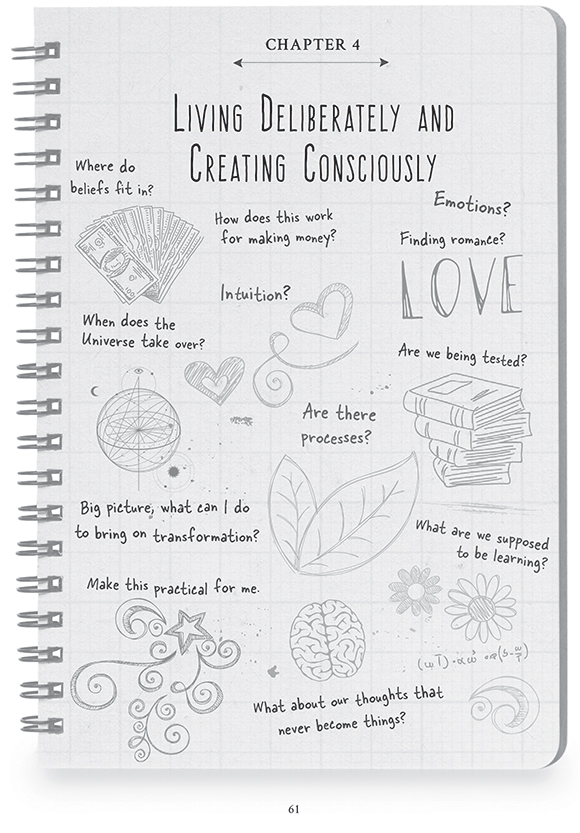 CHAPTER 4
LIVING DELIBERATELY AND
CREATING CONSCIOUSLY
Where do
beliefs fit in?
Emotions?
How does this work
for making money?
Finding romance?
LOVE
Intuition?
When does the
Universe take over?
Are we being tested?
Are there
processes?
Big picture, what can I do
to bring on transformation?
What are we supposed
to be learning?
Make this practical for me.
What about our thoughts that
never become things?
61